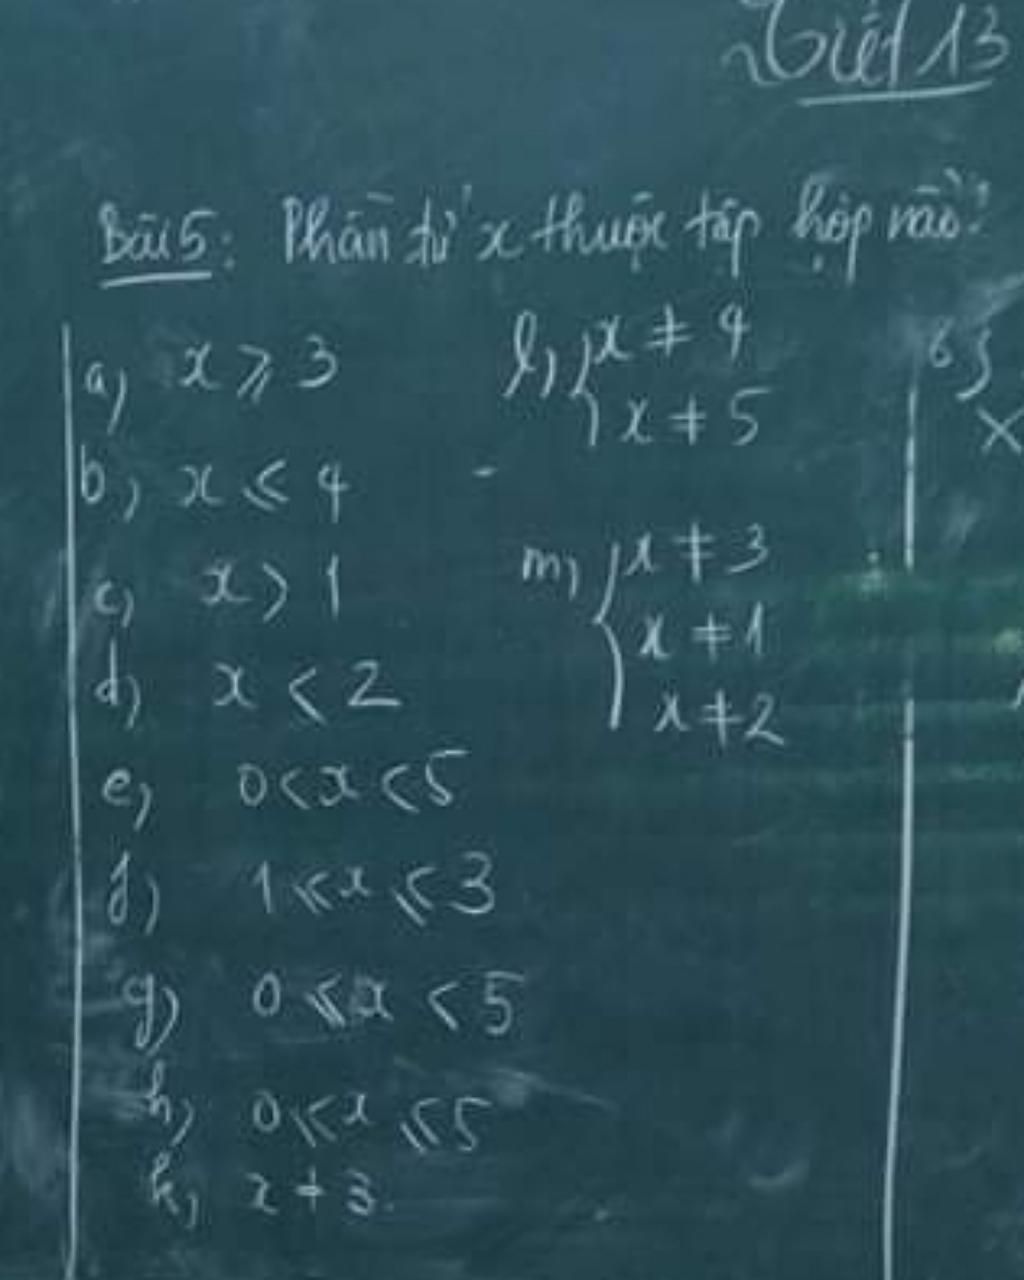 Tiết 13
Bài 5: Phần tử x thuộc tập hợp nào?
a) x ⩾ 3
b) x ⩽ 4
c) x > 1
d) x < 2
e) 0 < x < 5
f) 1 ⩽ x ⩽ 3
g) 0 ⩽ x < 5
h) 0 ⩽ x ⩽ 5
k) x ≠ 3.
l) { x ≠ 4
x ≠ 5
m) { x ≠ 3
x ≠ 1
x ≠ 2
6}
X